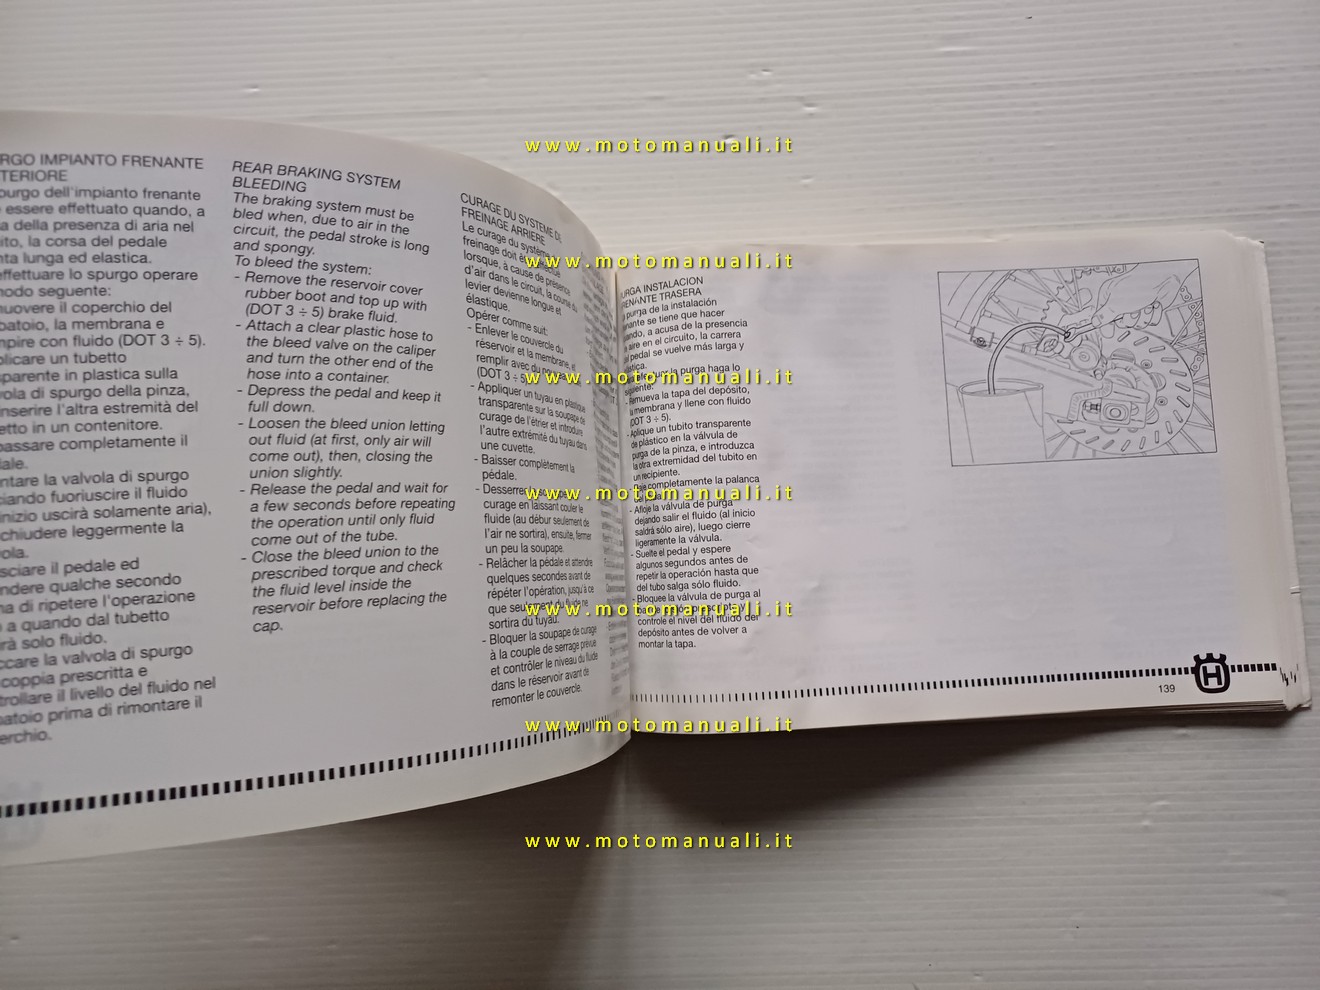 RGO IMPIANTO FRENANTE
TERIORE
purgo dell'impianto frenante
essere effettuato quando, a
a della presenza di aria nel
ito, la corsa del pedale
nta lunga ed elastica.
effettuare lo spurgo operare
modo seguente:
nuovere il coperchio del
batoio, la membrana e
mpire con fluido (DOT 3 ÷ 5).
plicare un tubetto
sparente in plastica sulla
vola di spurgo della pinza,
inserire l'altra estremità del
etto in un contenitore.
passare completamente il
dale.
ntare la valvola di spurgo
ciando fuoriuscire il fluido
inizio uscirà solamente aria),
chiudere leggermente la
vola.
sciare il pedale ed
ndere qualche secondo
na di ripetere l'operazione
a quando dal tubetto
irà solo fluido.
ccare la valvola di spurgo
coppia prescritta e
trollare il livello del fluido nel
batoio prima di rimontare il
erchio.
REAR BRAKING SYSTEM
BLEEDING
The braking system must be
bled when, due to air in the
circuit, the pedal stroke is long
and spongy.
To bleed the system:
- Remove the reservoir cover
rubber boot and top up with
(DOT 3 ÷ 5) brake fluid.
- Attach a clear plastic hose to
the bleed valve on the caliper
and turn the other end of the
hose into a container.
- Depress the pedal and keep it
full down.
- Loosen the bleed union letting
out fluid (at first, only air will
come out), then, closing the
union slightly.
- Release the pedal and wait for
a few seconds before repeating
the operation until only fluid
come out of the tube.
- Close the bleed union to the
prescribed torque and check
the fluid level inside the
reservoir before replacing the
cap.
CURAGE DU SYSTEME DE
FREINAGE ARRIERE
Le curage du système
freinage doit
lorsque, à cause de présence
d'air dans le circuit, la course du
levier devienne longue et
élastique.
Opérer comme suit:
- Enlever le couvercle du
réservoir et la membrane, e
remplir avec du
(DOT 3 ÷ 5)
- Appliquer un tuyau en plastique
transparente sur la soupape de
curage de l'étrier et introduire
l'autre extrémité du tuyau dans
une cuvette.
- Baisser complètement la
pédale.
- Desserrer
curage en laissant couler le
fluide (au début seulement de
l'air ne sortira), ensuite, fermer
un peu la soupape.
- Relâcher la pédale et attendre
quelques secondes avant de
répéter l'opération, jusqu'à ce
que seulement du fluide ne
sortira du tuyau.
- Bloquer la soupape de curage
à la couple de serrage prévue
et contrôler le niveau du fluide
dans le réservoir avant de
remonter le couvercle.
URGA INSTALACION
RENANTE TRASERA
purga de la instalación
nante se tiene que hacer
ando, a acusa de la presencia
aire en el circuito, la carrera
pedal se vuelve más larga y
stica.
la purga haga lo
siguiente:
Remueva la tapa del depósito,
la membrana y llene con fluido
(DOT 3 ÷ 5).
- Aplique un tubito transparente
de plástico en la válvula de
purga de la pinza, e introduzca
la otra extremidad del tubito en
un recipiente.
completamente la palanca
- Afloje la válvula de purga
dejando salir el fluido (al inicio
saldrá sólo aire), luego cierre
ligeramente la válvula.
- Suelte el pedal y espere
algunos segundos antes de
repetir la operación hasta que
del tubo salga sólo fluido.
- Bloquee la válvula de purga al
controle el nivel del fluido del
depósito antes de volver a
montar la tapa.
139
H
www.motomanuali.it
www.motomanuali.it
www.motomanuali.it
www.motomanuali.it
www.motomanuali.it
www.motomanuali.it
www.motomanuali.it